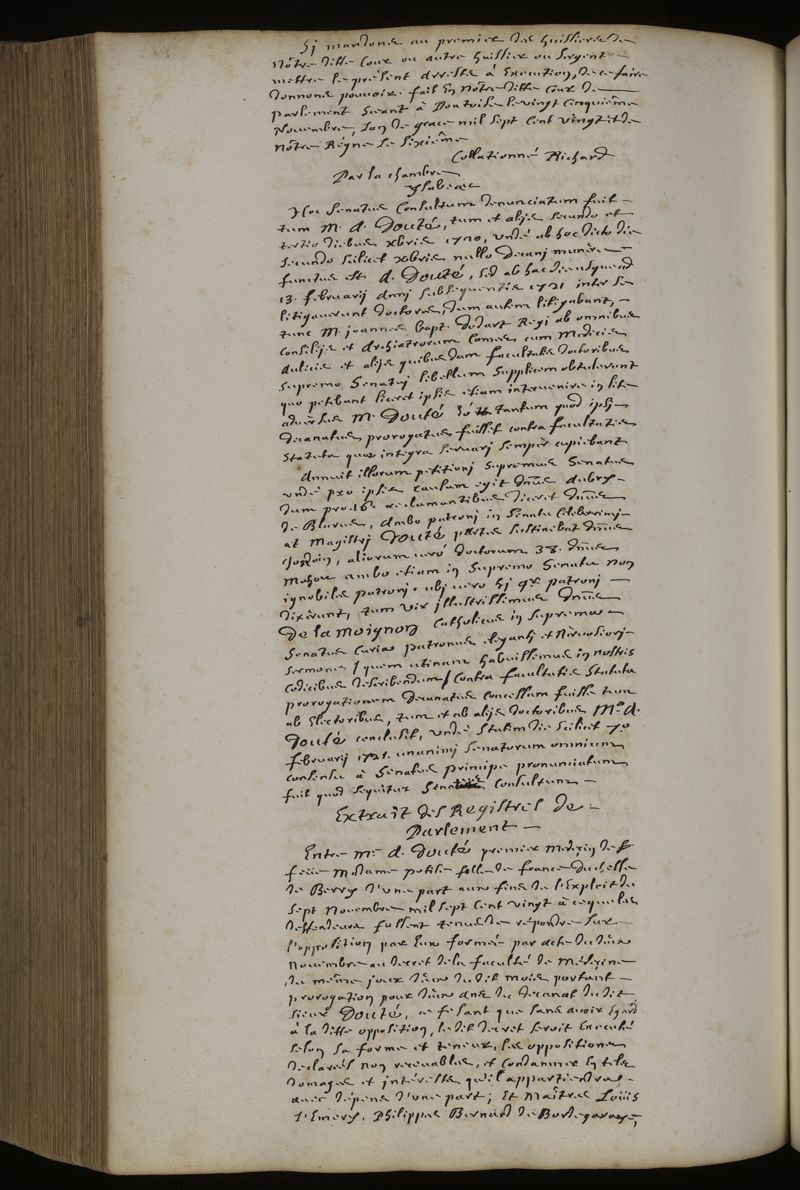 Sj mandons au premier des huissiers de
nôtre ditte Cour ou autre huissier ou sergent
mettre le présent arreste à Execution, de ce faire
donnons pouvoir. fait En nôtre ditte Cour de
parlement seant à Pontoise le vingt cinquiéme
Novembre, l'an de grace mil sept Cent vingt et de
nôtre Régne le sixiéme
Collationné Richard
Par la chambre
Ysabeau
Hoc Senatus Consultum denunciatum fuit
tum M. d. Douté, tum et alijs secundo et
tertio diebus xbris 1720, undé ab hoc dicto die
secundo scilicet xbris nullo Decanj munere
functus est d. Douté, sed ab hac die usque ad
13. februarij annj subsequentis 1721 inter se
litigaverunt doctores, dum autem litigabant,
tunc M. joannes bapt. Dodart Regi ab omnibus
Consilijs et Archiatrorum Comes cum Medicis
aulicis et alijs quibusdam facultatis doctoribus
supremo Senatuj libellum supplicem obtulerunt
quo petebant liceret ipsis etiam intervenire in lite
adversus M. Douté eó tantum quod ipsj
decanatus prorogatus fuisset contra facultatis
Statuta quae integra servarj semper cupiebant
Annuit illorum petitionj supremus Senatus
undé pro ipsis causam egit dnus Aubry
dum pro 16. reclamantibus diceret dnus
de Blarus, Ambo patronj in senatu Celeberrimj
at Magistrj Douté partes sustinebat dnus
, aliorum veró doctorum 38. dnus
ambo etiam in supremo Senatu non
ignobiles patronj. ubj vero hj 4r. patronj
dixérunt, tum vir jllustrissimus dnus
De la Moignon Catholicus in suprema
Senatus Curia patronus elegantj et Nervosiorj
sermone / quem utinam habuissemus in nostris
codicibus describendum / Contra facultatis Statuta
prorogationem Decanatus concessam fuisse tum
ab Electoribus, tum et ab alijs doctoribus Mo. d.
Douté conclusit, undé statim die scilicet 7o.
februarij 1721. unanimj senatorum omnium
consensu à Senatus principe pronunciatum
fuit quod sequitur Senatus Consultum
Extrait des Registres de
Parlement
Entre Mre. d. Douté premier Medecin de
feüe Madame petite fille de france Duchesse
de Berry d'une part aux fins de l'Exploit du
sept Novembre mil sept Cent vingt à ce que les
deffendeurs fussent tenus de répondre sur
l'opposition par Eux formée par acte du deux
Novembre au Decret de la faculté de Médecine
du même jour deux du dit mois portant
prorogation pour deux ans du decanat du dit
sieur Douté, ce fesant que sans avoir Egard
à la ditte opposition, le dit decret seroit Executé
selon sa forme et teneur, les oppositions
declareés non recevables, et Condamner En tels
domages et intérests qu'il appartiendra
avec depens d'une part; Et Maîtres Loüis
l'Emery, Philippes Bernard de Bordegaraye,